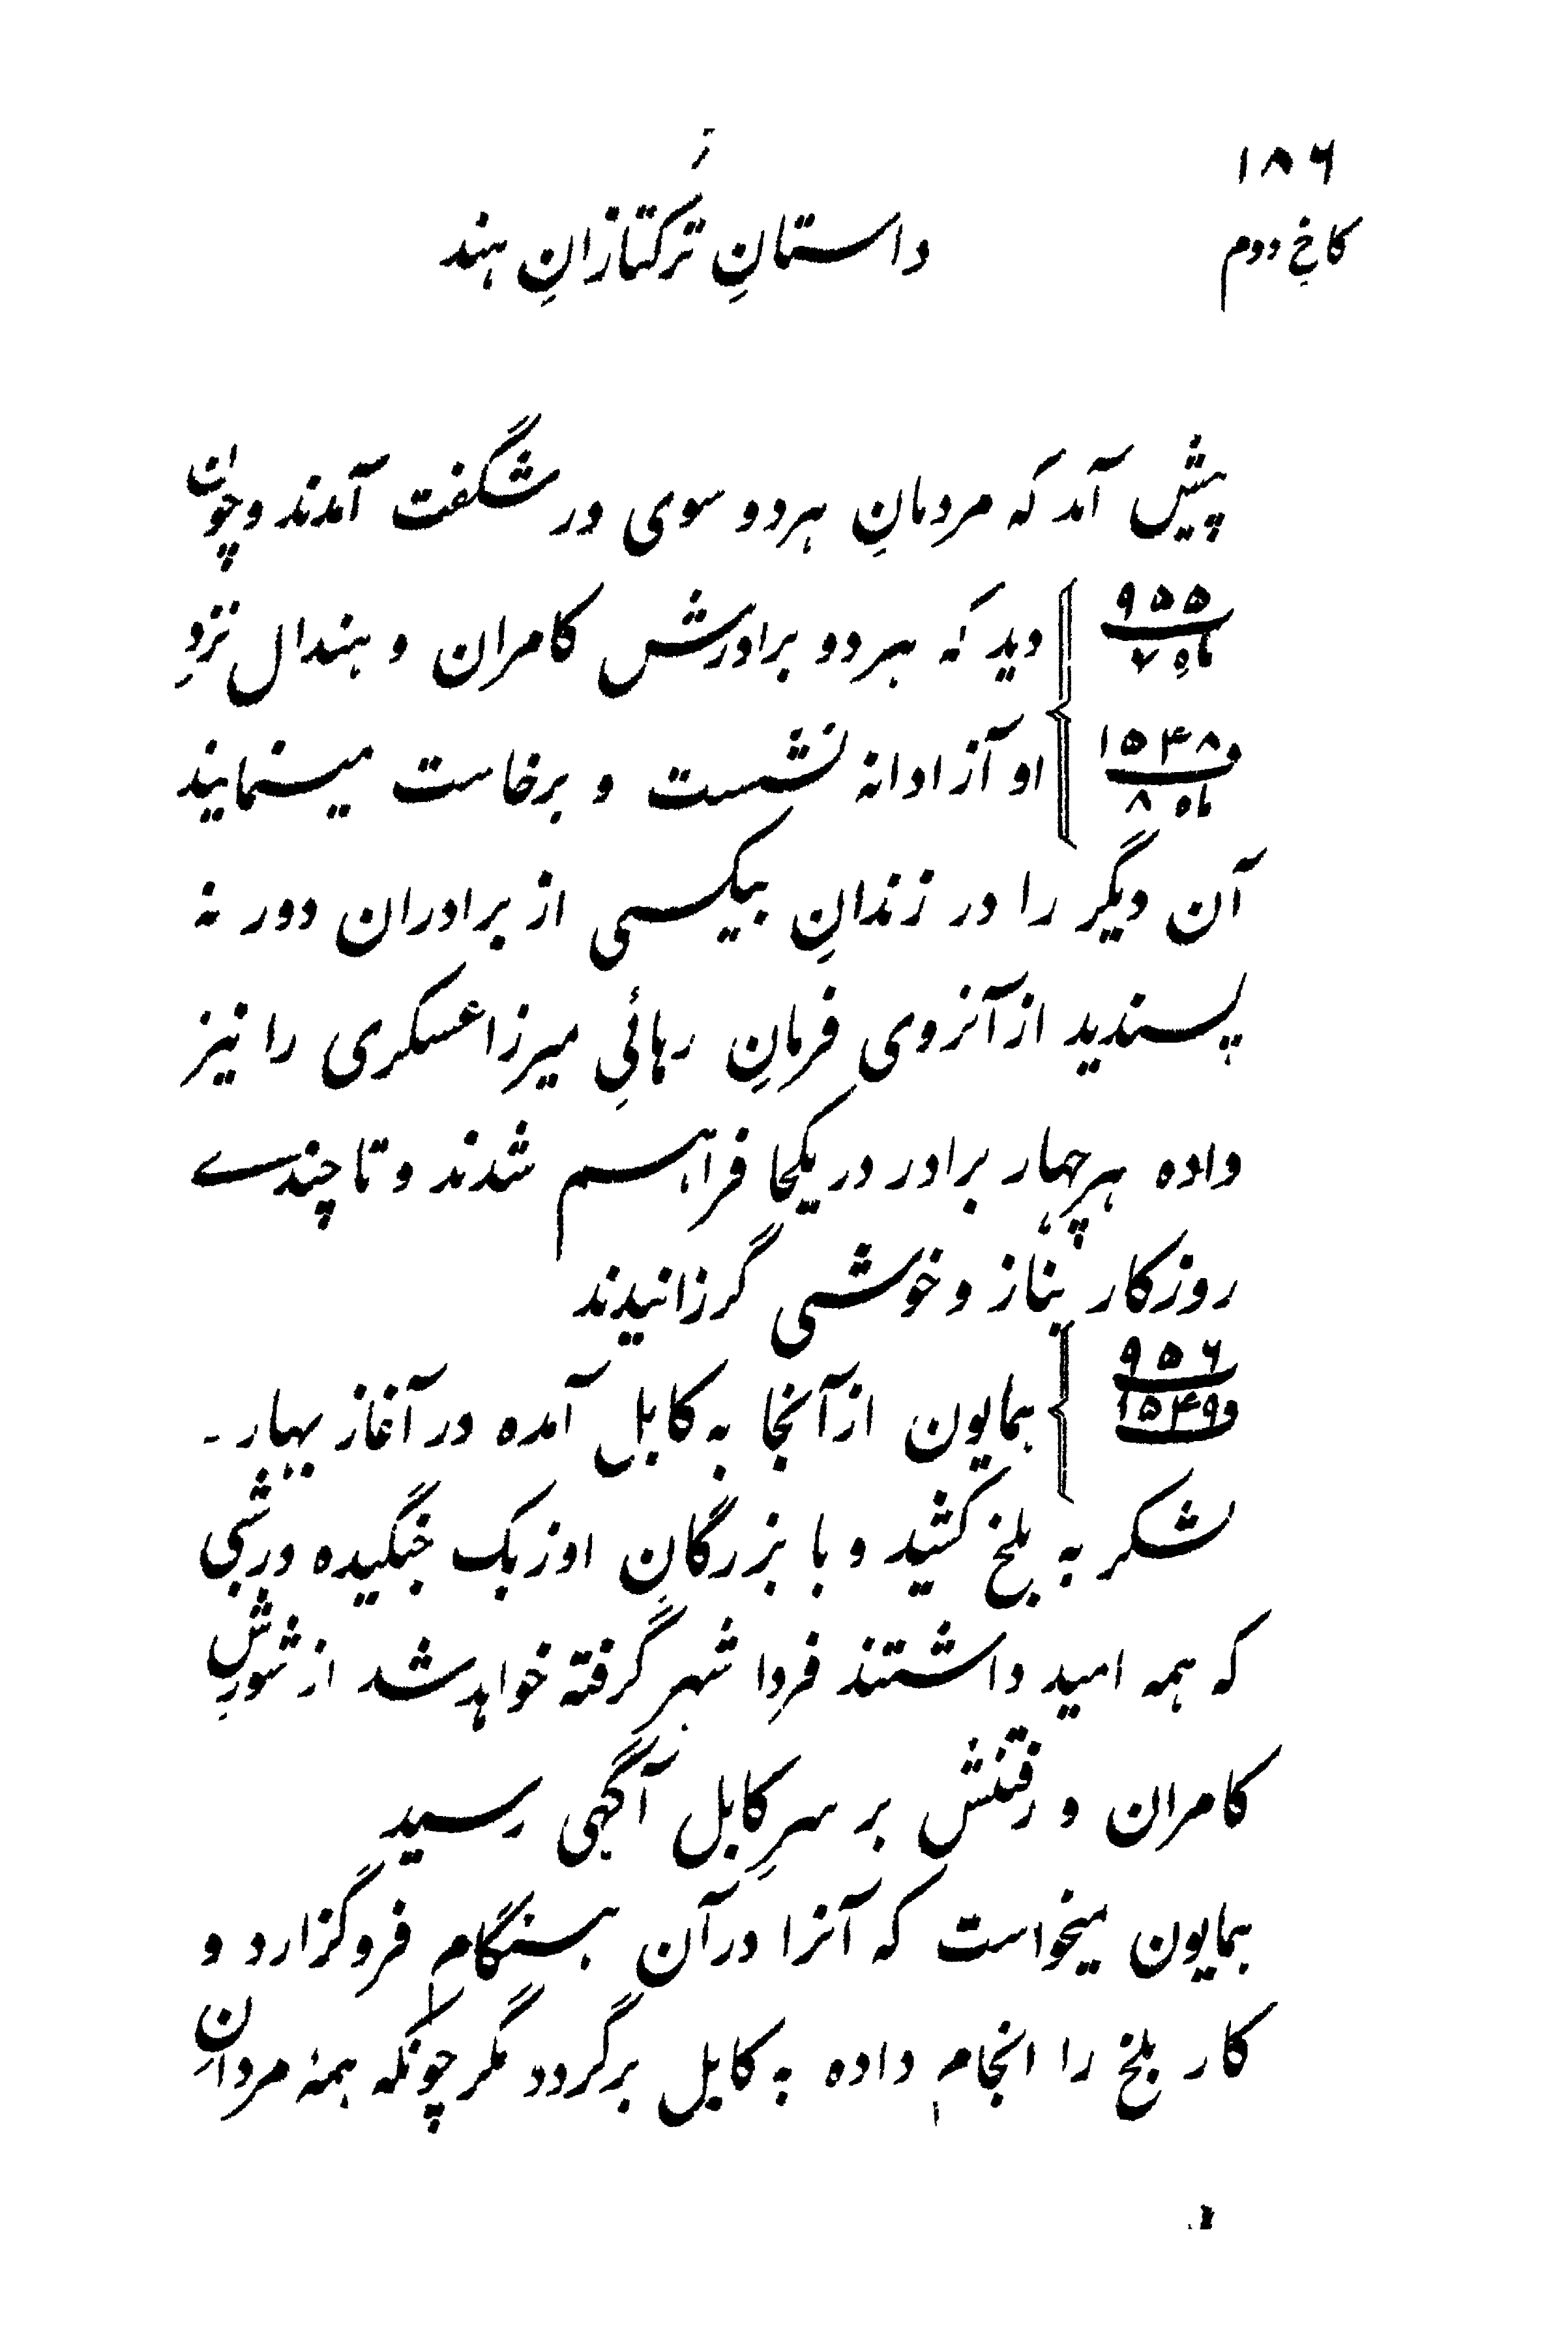 ۱۸۶
کاخ دوم
داستانِ ترکتازانِ هند
پیش آمد که مردمانِ هردو سوی در شگفت آمدند و چون
۹۵۵
ماه ۷
دید که هر دو برادرش کامران و هندال نزدِ
و ۱۵۴۸
ماه ۸
او آزادانه نشست و برخاست مینمایند
آن دیگر را در زندانِ بیکسی از برادران دور نه
پسندید از آنروی فرمانِ رهائیِ میرزا عسکری را نیز
داده هر چهار برادر در یکجا فراهم شدند و تا چندے
روزکار بناز و خوشی گرزانیدند
۹۵۶
و ۱۵۴۹
همایون از آنجا به کابل آمده در آغاز بهار ۔
لشکر به بلخ کشید و با بزرگانِ اوزبک جنگیده در شبی
که همه امید داشتند فردا شهر گرفته خواهد شد از شورشِ
کامران و رفتنش بر سرِ کابل آگهی رسید
همایون میخواست که آنرا در آن هنگام فروگزارد و
کار بلخ را انجام داده به کابل برگردد مگر چونکه همهٔ مردانِ